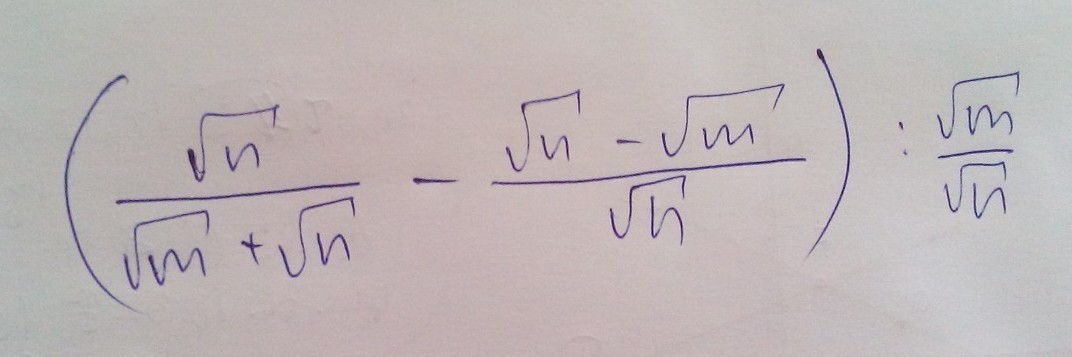 (√n / (√m + √n) - (√n - √m) / √n) : √m / √n